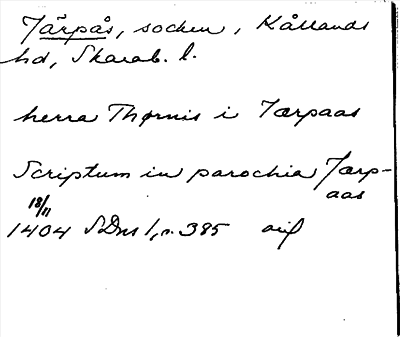 Järpås, socken, Kållands
hd, Skarab. l.
herra Thørnis i Iærpaas
Scriptum in parochia Jærp-
aas
18/11
1404 SDns 1, s. 385 avf